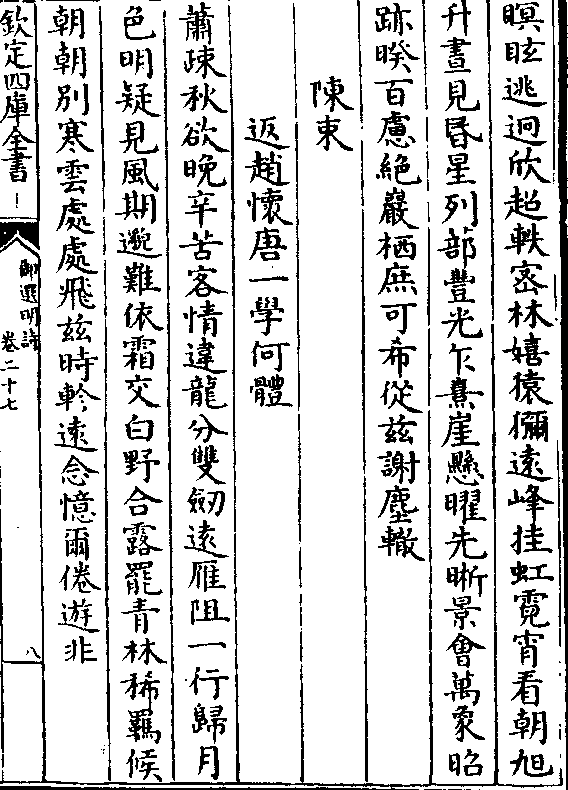 瞑眩逃迥欣超軼宻林嬉猿獼遠峰挂虹霓宵看朝旭
升晝見昬星列部豐光乍熹崖懸曜先晣景會萬象昭
跡暌百慮絶巖栖庶可希從兹謝塵轍
陳束
返趙懷唐一學何體
蕭疎秋欲晚辛苦客情違龍分雙劒遠雁阻一行歸月
色明疑見風期邈難依霜交白野合露罷青林稀羈候
朝朝别寒雲處處飛兹時軫遠念憶爾倦遊非
欽定四庫全書
御選明詩
卷二十七
八